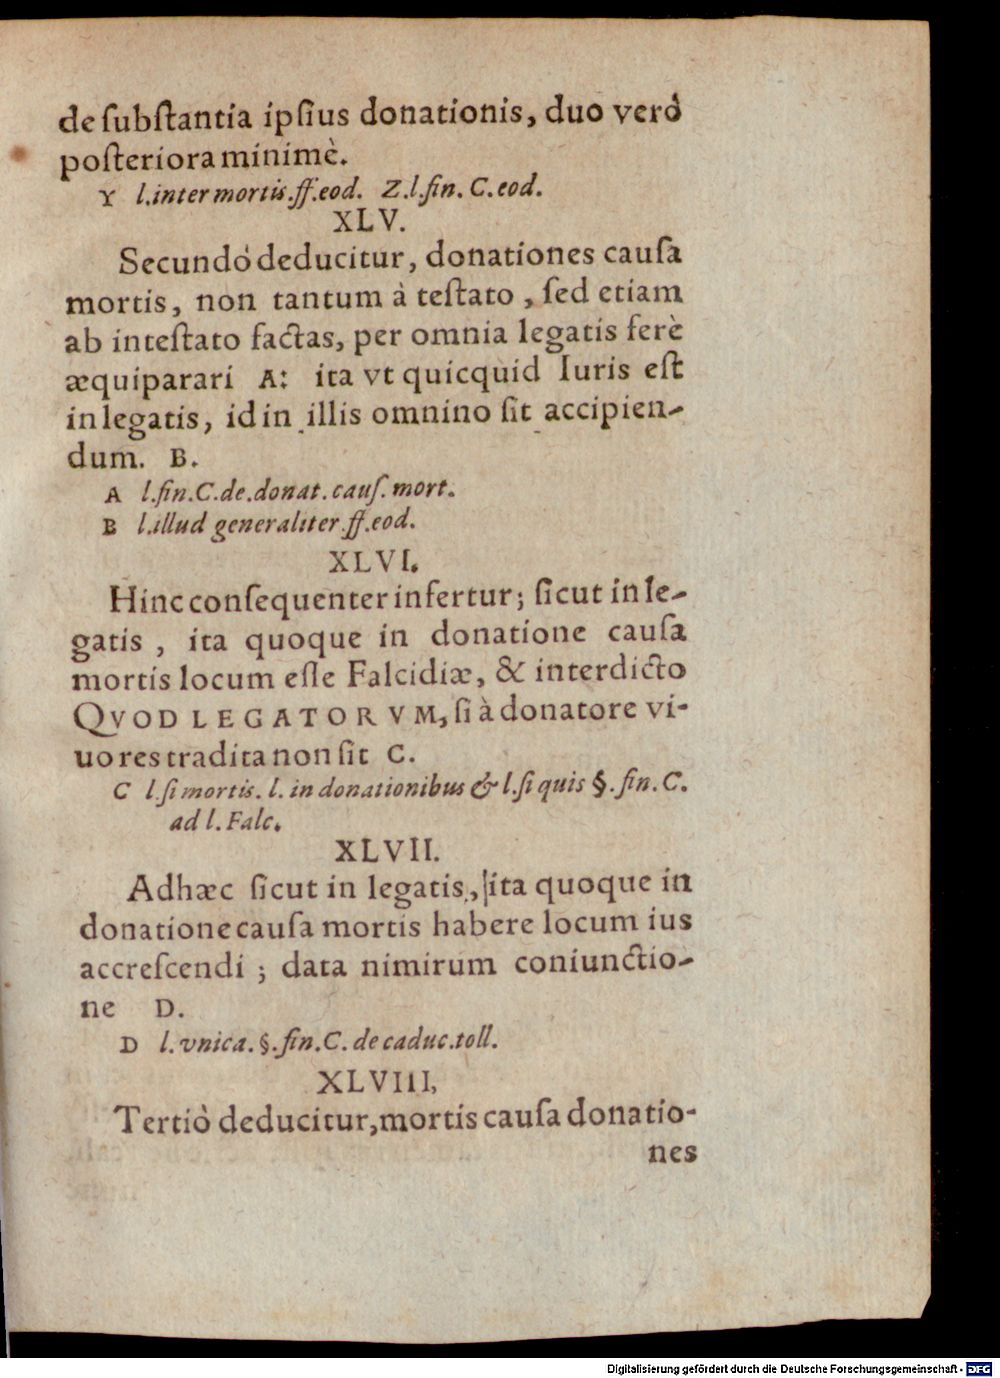 de ſubſtantia ipſius donationis, duo verò
poſteriora minimè.
Y l. inter mortis. ff. eod. Z. l. fin. C. eod.
XLV.
Secundò deducitur, donationes cauſa
mortis, non tantum à teſtato, ſed etiam
ab inteſtato factas, per omnia legatis ferè
æquiparari A: ita vt quicquid Iuris eſt
in legatis, id in illis omnino ſit accipien-
dum. B.
A l. fin. C. de. donat. cauſ. mort.
B l. illud generaliter ff. eod.
XLVI.
Hinc conſequenter infertur; ſicut in le-
gatis, ita quoque in donatione cauſa
mortis locum eſſe Falcidiæ, & interdicto
QVOD LEGATORVM, ſi à donatore vi-
uo res tradita non ſit C.
C l. ſi mortis. l. in donationibus & l. ſi quis §. fin. C.
ad l. Falc.
XLVII.
Adhæc ſicut in legatis, ita quoque in
donatione cauſa mortis habere locum ius
accreſcendi; data nimirum coniunctio-
ne D.
D l. vnica. §. fin. C. de caduc. toll.
XLVIII.
Tertiò deducitur, mortis cauſa donatio-
nes
Digitalisierung gefördert durch die Deutsche Forschungsgemeinschaft - DFG